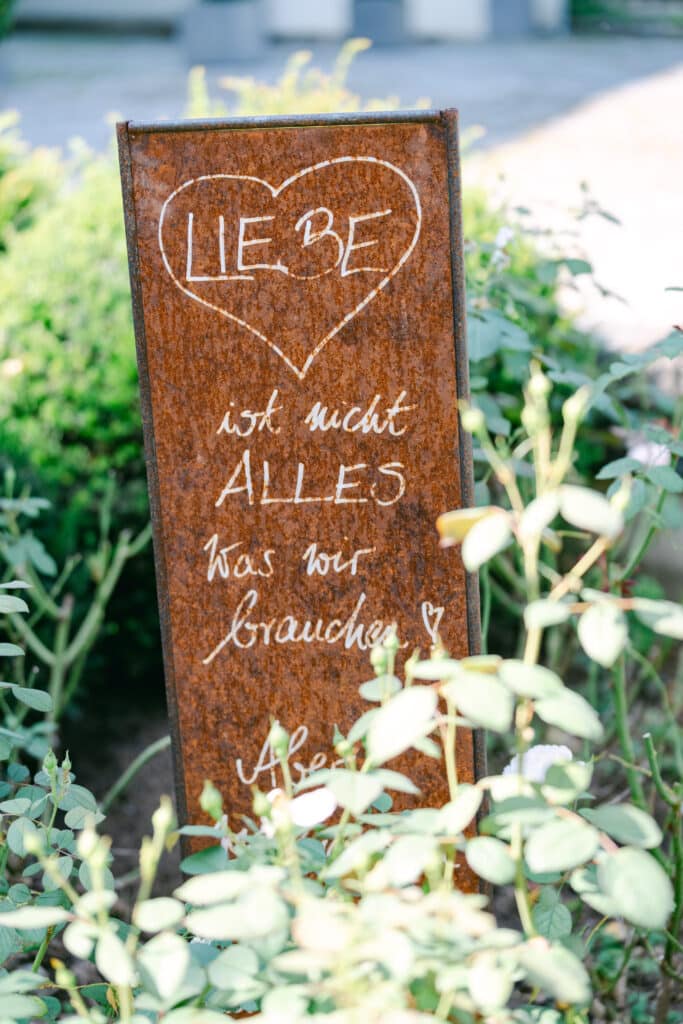 LIEBE
ist nicht
ALLES
Was wir
brauchen
Aber